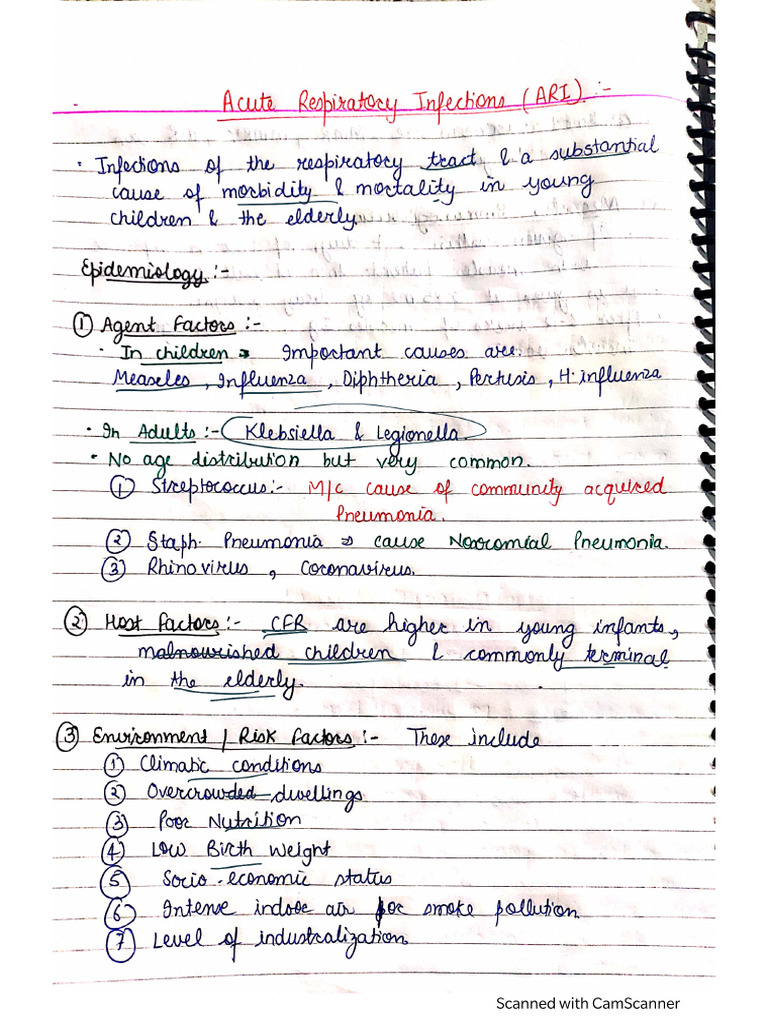 Acute Respiratory Infections (ARI) :-
• Infections of the respiratory tract & a substantial
cause of morbidity & mortality in young
children & the elderly.
Epidemiology :-
① Agent Factors :-
• In children → Important causes are:
Measeles, Influenza, Diphtheria, Pertusis, H. influenza
• In Adults :- Klebsiella & Legionella.
• No age distribution but very common.
① Streptococcus :- M/c cause of community acquired
Pneumonia.
② Staph. Pneumonia ⇒ cause Nosocomial Pneumonia.
③ Rhinovirus, Coronavirus.
② Host Factors :- CFR are higher in young infants,
malnourished children & commonly terminal
in the elderly.
③ Environment / Risk Factors :- These include
① Climatic conditions
② Overcrowded dwellings
③ Poor Nutrition
④ Low Birth Weight
⑤ Socio-economic status
⑥ Intense indoor air for smoke pollution
⑦ Level of industralization.
Scanned with CamScanner